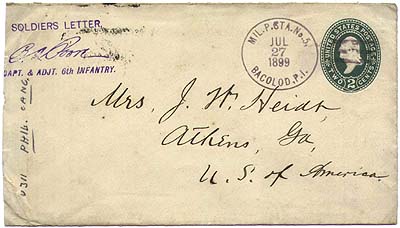 SOLDIERS LETTER.
CAPT. & ADJT. 6th INFANTRY.
MIL. P. STA. No. 5,
JUL
27
1899
BACOLOD, P.I.
UNITED STATES POSTAGE
TWO 2 CENTS
Mrs. J. W. Heidt,
Athens, Ga,
U. S. of America.
U311 PHIL. CANC